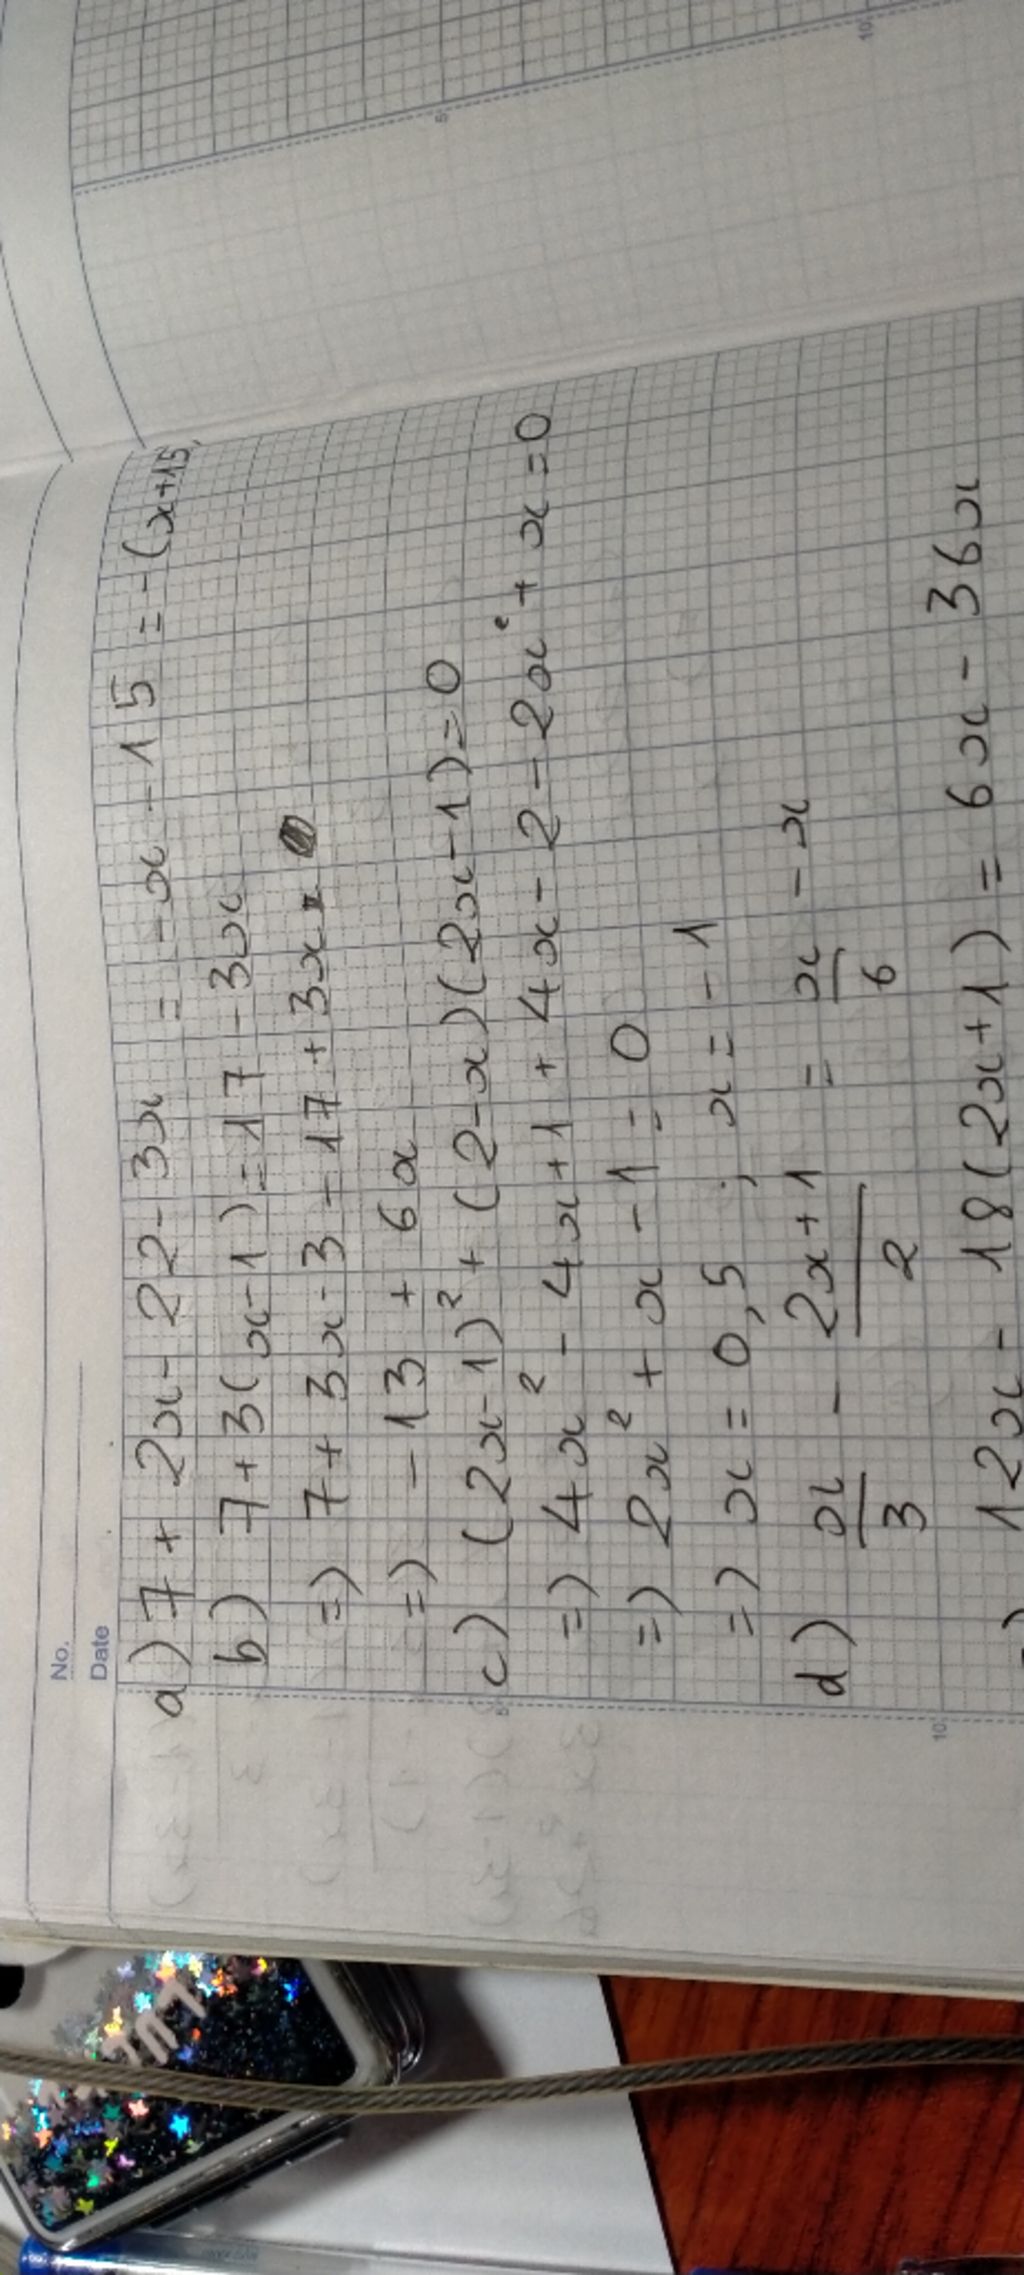 No.
Date
a) 7 + 2x - 22 - 3x = -x - 15 = -(x+15)
b) 7 + 3(x-1) = 17 - 3x
=) 7 + 3x - 3 - 17 + 3x
=) - 13 + 6x
c) (2x-1)² + (2-x)(2x-1) = 0
=) 4x² - 4x + 1 + 4x - 2 - 2x² + x = 0
=) 2x² + x - 1 = 0
=) x = 0,5 ; x = - 1
d) x/3 - (2x+1)/2 = x/6 - x
12x - 18(2x+1) = 6x - 36x
5
10
5
10